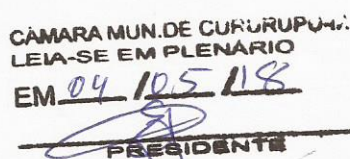 CÂMARA MUN.DE CURURUPU-MA
LEIA-SE EM PLENÁRIO
EM 04 / 05 / 18
PRESIDENTE